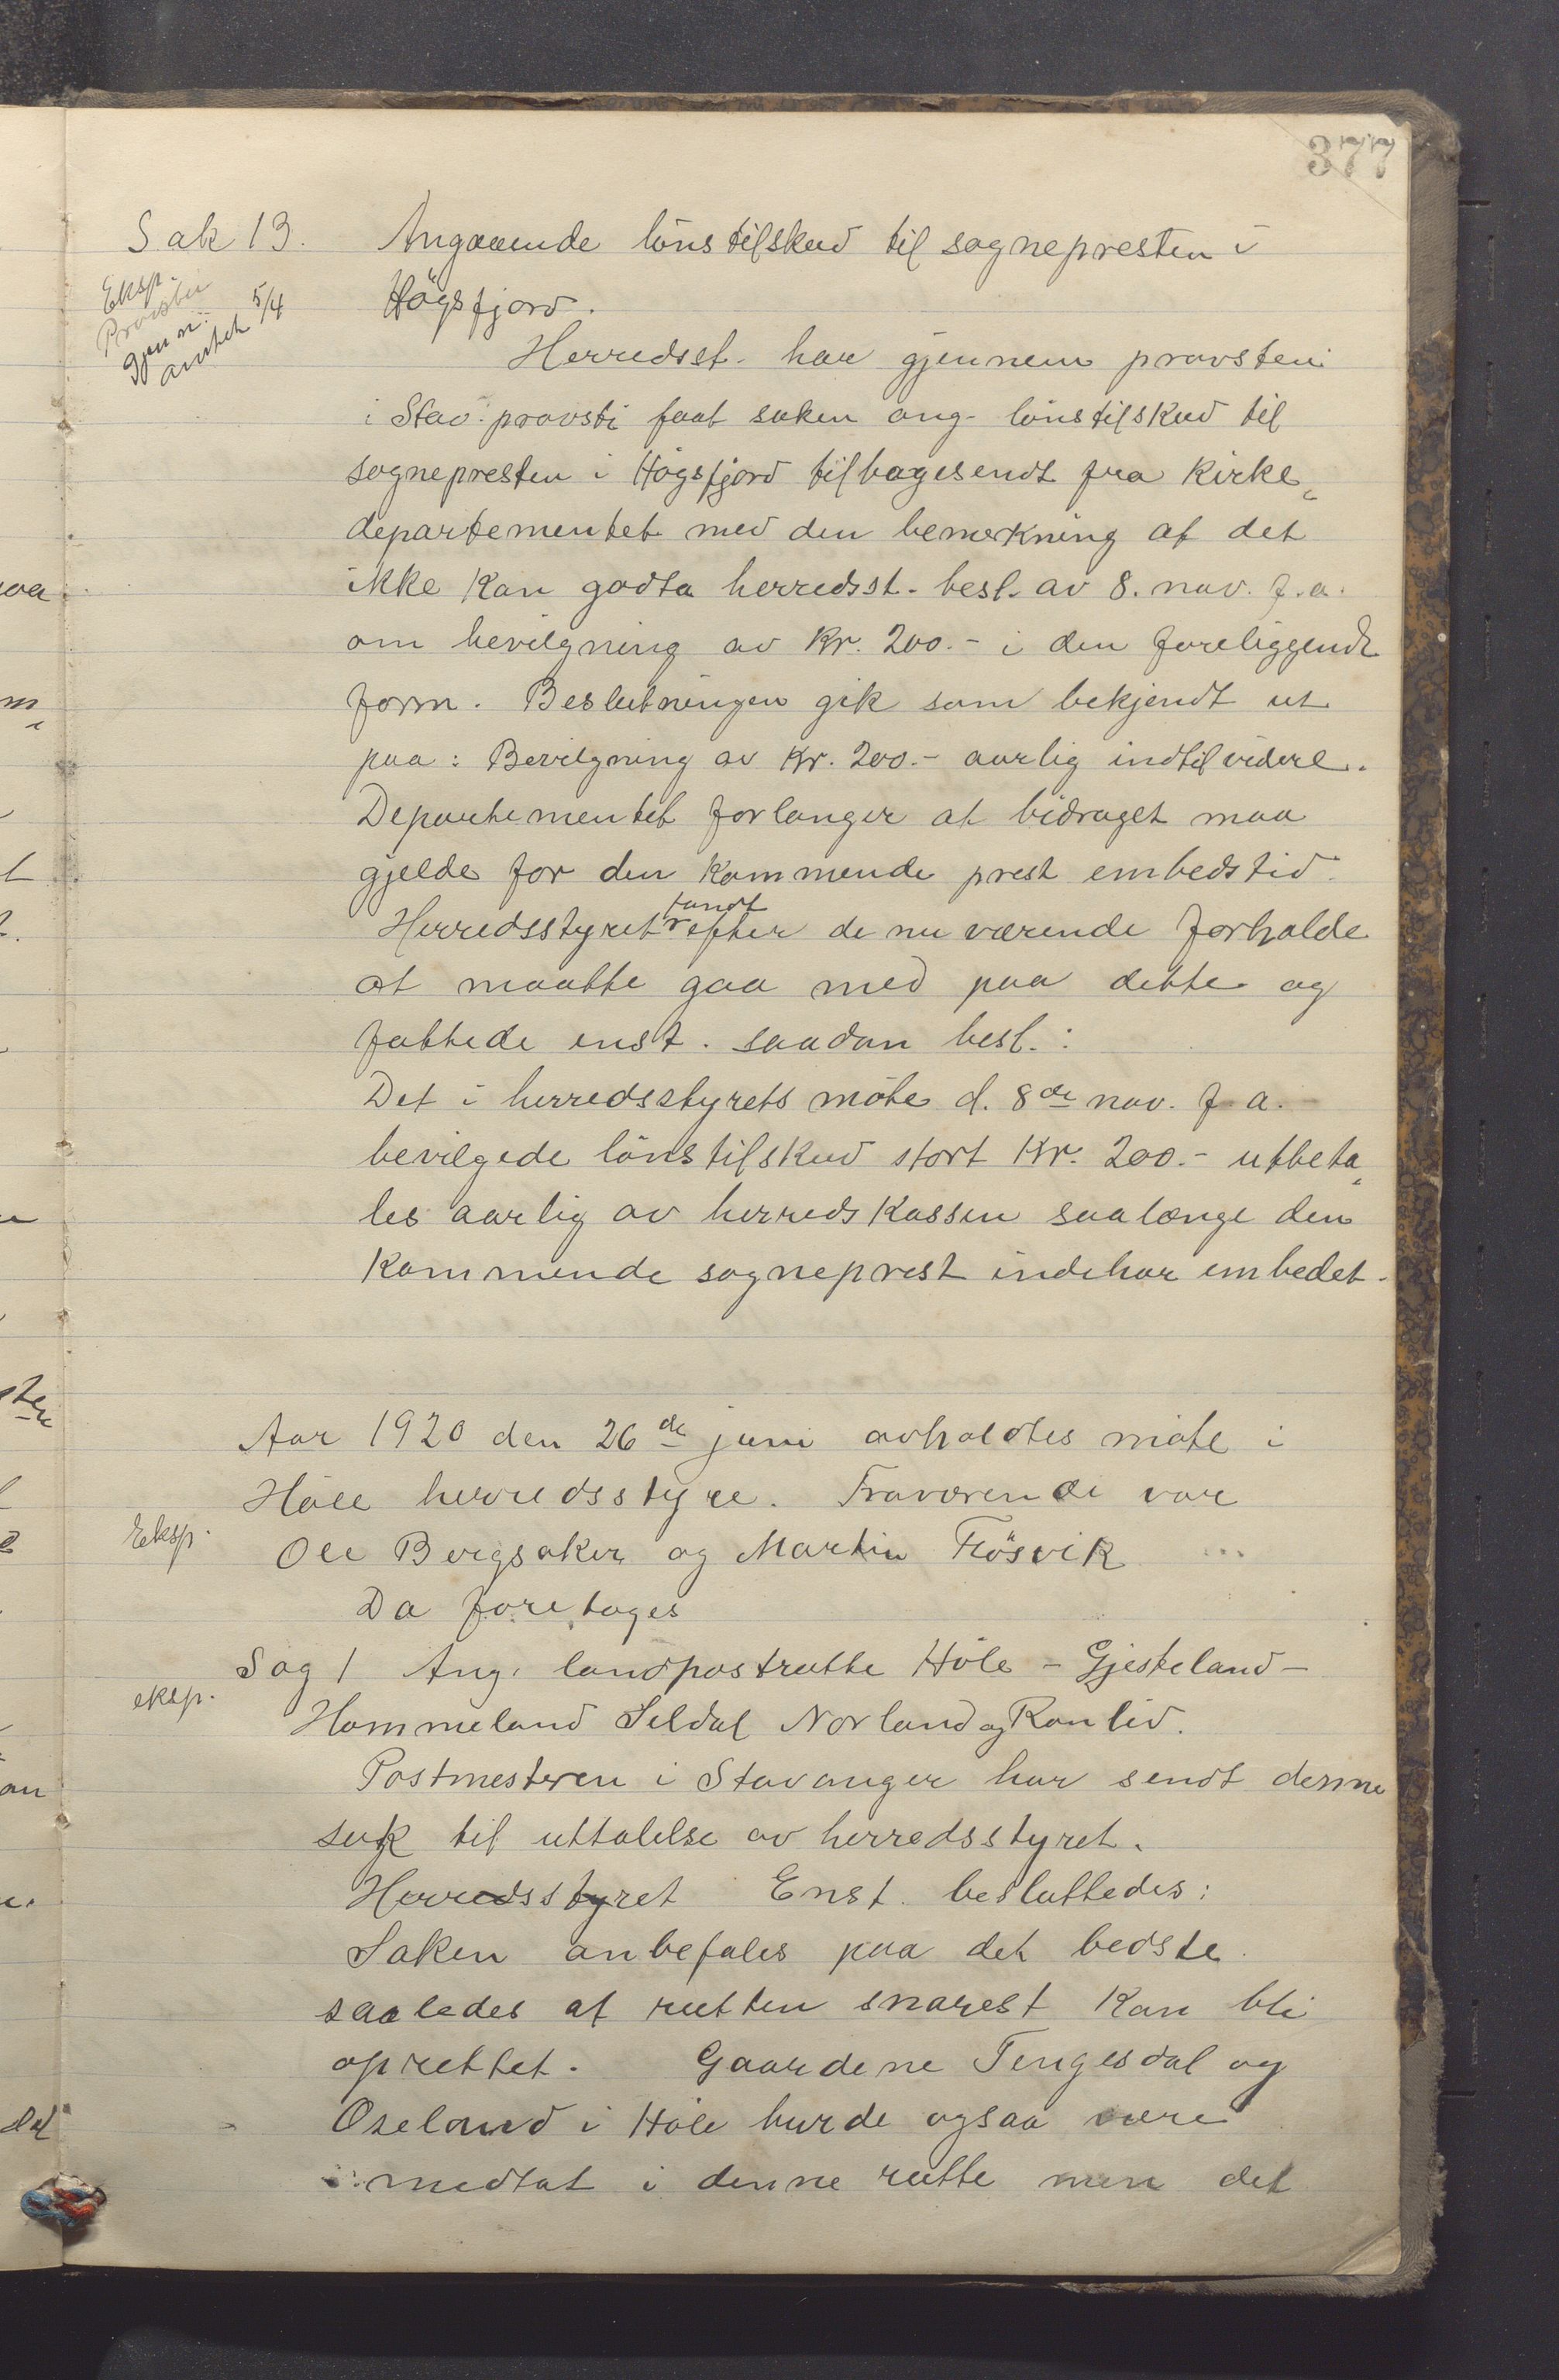 377
Sak 13. Angaaende lönstilskud til sognepresten i
Eksp.
Provsten
gjenn.
amtet 5/4
Högsfjord.
Herredsst. har gjennem provsten
i Stav. provsti faat saken ang. lönstilskud til
sognepresten i Högsfjord tilbagesendt fra kirke„
departementet med den bemerkning at det
ikke kan godta herredsst. besl. av 8. nov. f.a.
om bevilgning av kr. 200.- i den foreliggende
form. Beslutningen gik som bekjendt ut
paa: Bevilgning av kr. 200.- aarlig indtilvidere.
Departementet forlanger at bidraget maa
gjelde for den kommende prest embedstid.
Herredsstyret fandt efter de nu værende forholde
at maatte gaa med paa dette og
fattede enst. saadan besl.:
Det i herredsstyrets möte d. 8de nov. f.a.
bevilgede lönstilskud stort Kr. 200.- utbeta„
les aarlig av herredskassen saalænge den
kommende sogneprest indehar embedet.
Aar 1920 den 26de juni avholdtes möte i
Höle herredsstyre. Fraværende var
Eksp.
Ole Bergsaker og Martin Frösvik
Da foretoges
Sag 1 Ang. landpostrutte Höle - Gjesteland -
eksp.
Hommeland Seldal Norland og Ronlid.
Postmesteren i Stavanger har sendt denne
sak til uttalelse av herredsstyret.
Herredsstyret Enst. besluttedes:
Saken anbefales paa det bedste
saaledes at rutten snarest kan bli
oprettet. Gaardene Tengesdal og
Oseland i Höle burde ogsaa være
medtat i denne rutte men det